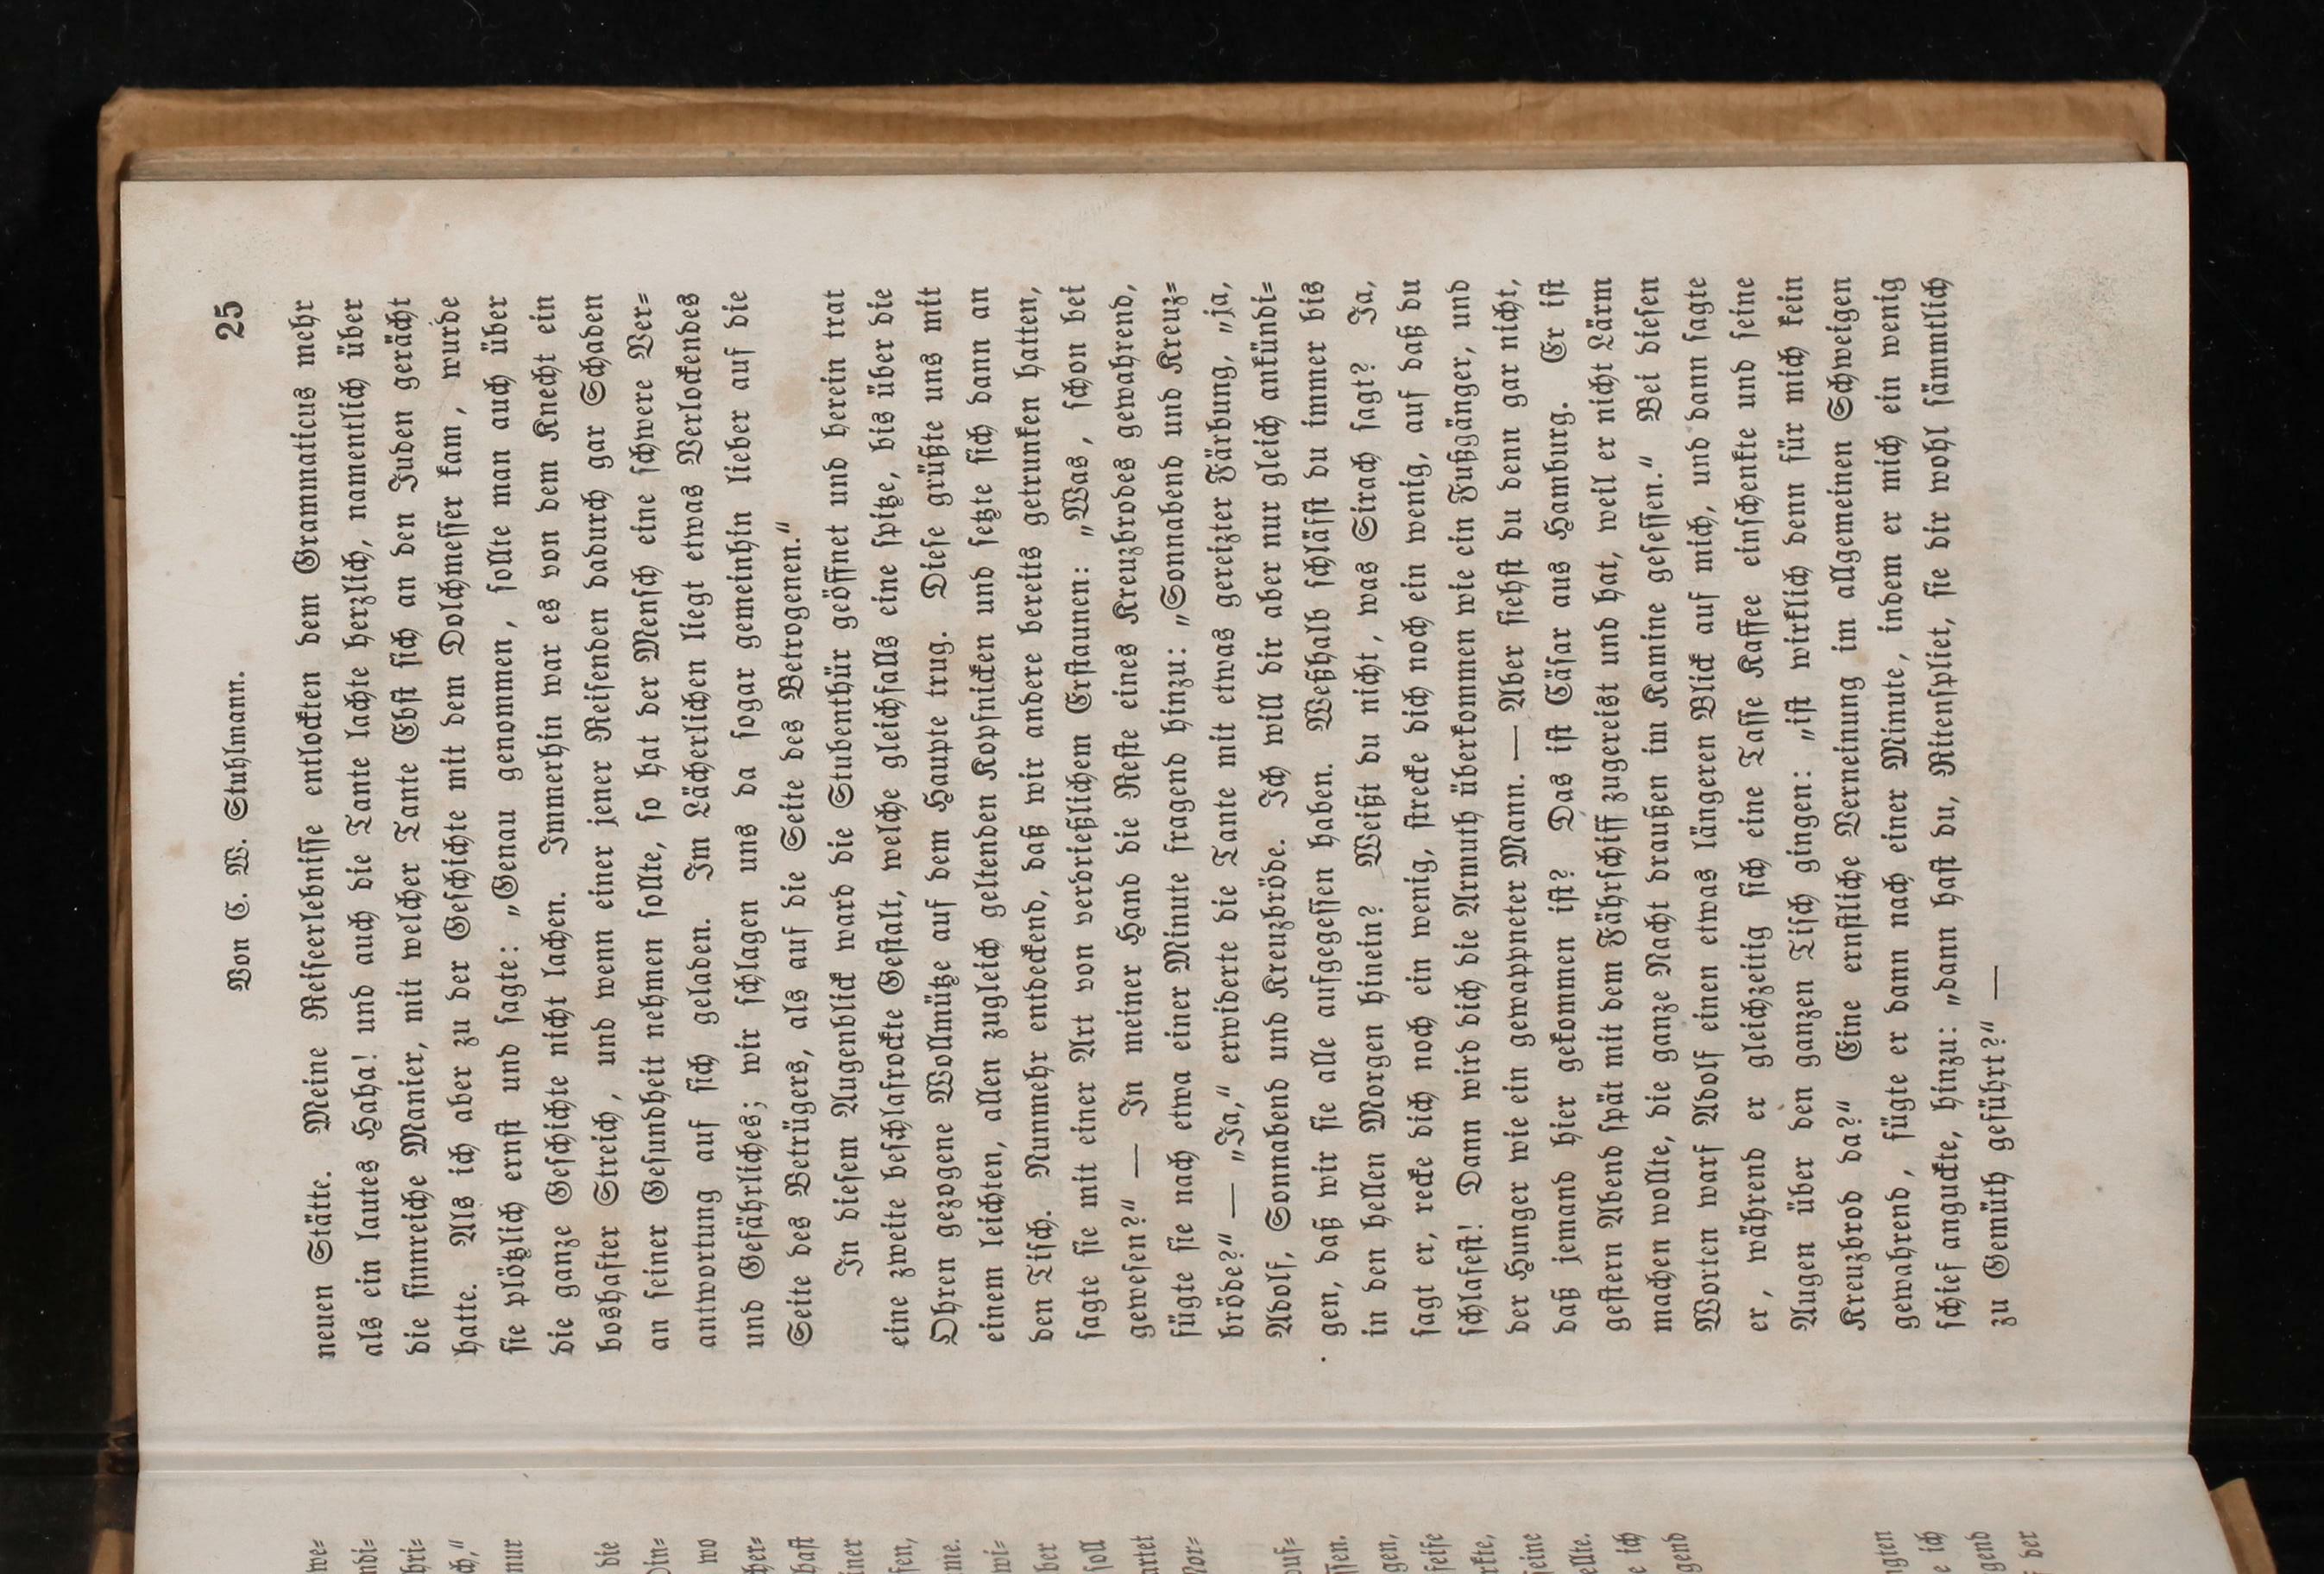 Von C. W. Stuhlmann. 25
neuen Stätte. Meine Reiseerlebnisse entlockten dem Grammaticus mehr
als ein lautes Haha! und auch die Tante lachte herzlich, namentlich über
die sinnreiche Manier, mit welcher Tante Ebst sich an den Juden gerächt
hatte. Als ich aber zu der Geschichte mit dem Dolchmesser kam, wurde
sie plötzlich ernst und sagte: „Genau genommen, sollte man auch über
die ganze Geschichte nicht lachen. Immerhin war es von dem Knecht ein
boshafter Streich, und wenn einer jener Reisenden dadurch gar Schaden
an seiner Gesundheit nehmen sollte, so hat der Mensch eine schwere Ver⸗
antwortung auf sich geladen. Im Lächerlichen liegt etwas Verlockendes
und Gefährliches; wir schlagen uns da sogar gemeinhin lieber auf die
Seite des Betrügers, als auf die Seite des Betrogenen.“
In diesem Augenblick ward die Stubenthür geöffnet und herein trat
eine zweite beschlafrockte Gestalt, welche gleichfalls eine spitze, bis über die
Ohren gezogene Wollmütze auf dem Haupte trug. Diese grüßte uns mit
einem leichten, allen zugleich geltenden Kopfnicken und setzte sich dann an
den Tisch. Nunmehr entdeckend, daß wir andere bereits getrunken hatten,
sagte sie mit einer Art von verdrießlichem Erstaunen: „Was, schon bei
gewesen?“ — In meiner Hand die Reste eines Kreuzbrodes gewahrend,
fügte sie nach etwa einer Minute fragend hinzu: „Sonnabend und Kreuz⸗
bröde?“ — „Ja,“ erwiderte die Tante mit etwas gereizter Färbung, „ja,
Adolf, Sonnabend und Kreuzbröde. Ich will dir aber nur gleich ankündi⸗
gen, daß wir sie alle aufgegessen haben. Weßhalb schläfst du immer bis
in den hellen Morgen hinein? Weißt du nicht, was Sirach sagt? Ja,
sagt er, recke dich noch ein wenig, strecke dich noch ein wenig, auf daß du
schlafest! Dann wird dich die Armuth überkommen wie ein Fußgänger, und
der Hunger wie ein gewappneter Mann. — Aber siehst du denn gar nicht,
daß jemand hier gekommen ist? Das ist Cäsar aus Hamburg. Er ist
gestern Abend spät mit dem Fährschiff zugereist und hat, weil er nicht Lärm
machen wollte, die ganze Nacht draußen im Kamine gesessen.“ Bei diesen
Worten warf Adolf einen etwas längeren Blick auf mich, und dann sagte
er, während er gleichzeitig sich eine Tasse Kaffee einschenkte und seine
Augen über den ganzen Tisch gingen: „ist wirklich denn für mich kein
Kreuzbrod da?“ Eine ernstliche Verneinung im allgemeinen Schweigen
gewahrend, fügte er dann nach einer Minute, indem er mich ein wenig
schief anguckte, hinzu: „dann hast du, Ritenspliet, sie dir wohl sämmtlich
zu Gemüth geführt?“ —